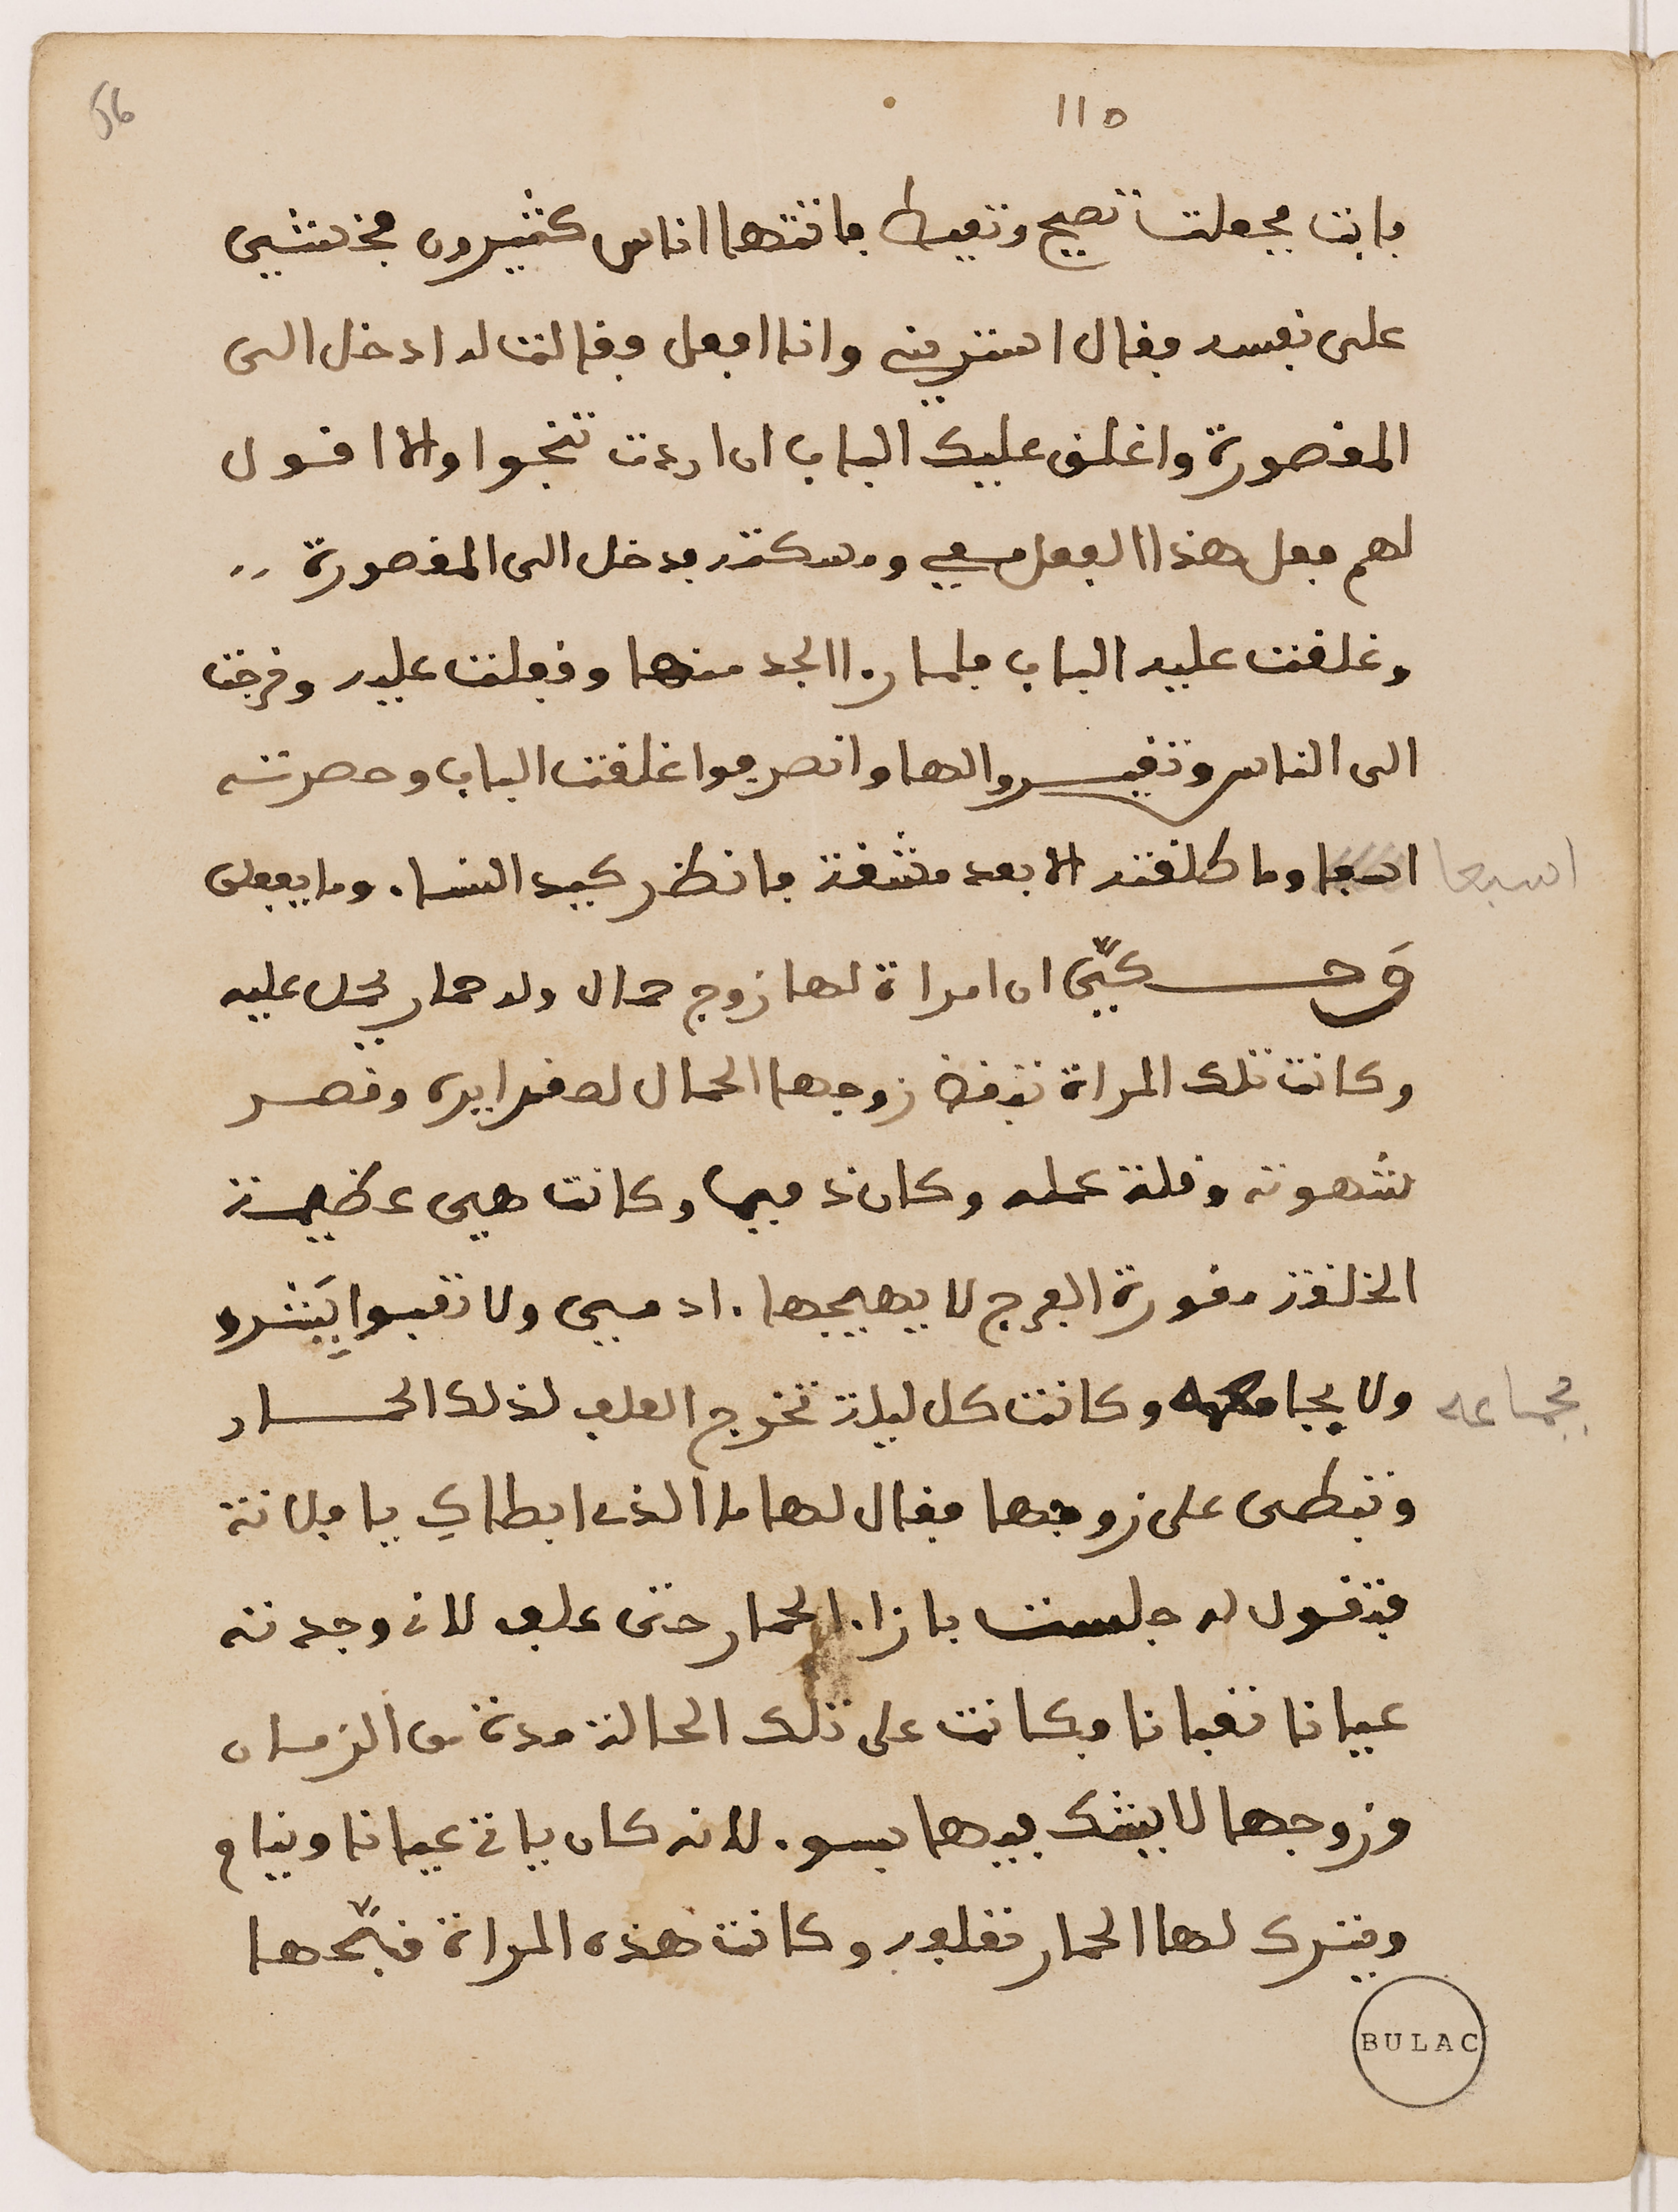 56
115
فابت فجعلت تصيح وتعيط فاتتها اناس كثيرون فخشي
على نفسه فقال استريني وانا افعل فقالت له ادخل الى
المقصورة واغلق عليك الباب ان اردت تنجوا والا اقول
لهم فعل هذا الفعل معي وسكتت فدخل الى المقصورة
وغلقت عليه الباب فلما را الجد منها وقفلت عليه وخرجت
الى الناس وتغيروا لها وانصرفوا اغلقت الباب وحصرته
اسبعا وما طلقته الا بعد مشقة فانظر كيد النساء وما يفعلن
اسبعا
وحكي ان امراة لها زوج حمال وله حمار يحمل عليه
وكانت تلك المراة تبغض زوجها الحمال لصغر ايره وقصر
شهوته وقلة عمله وكان ذميما وكانت هي عظيمة
الخلقة مقورة الفرج لا يهيجها ادمي ولا تقبوا يبشرو
ولا يجامعها وكانت كل ليلة تخرج العلف لذلك الحمار
بجماعه
وتبطى على زوجها فقال لها ما الذي ابطاك يا فلانة
فتقول له جلست بازاء الحمار حتى علف لاني وجدته
عيانا تعبانا فكانت على تلك الحالة مدة من الزمان
وزوجها لا يشك فيها بسوء لانه كان ياتي عيانا وينام
ويترك لها الحمار تعلفه وكانت هذه المراة قبحها
BULAC